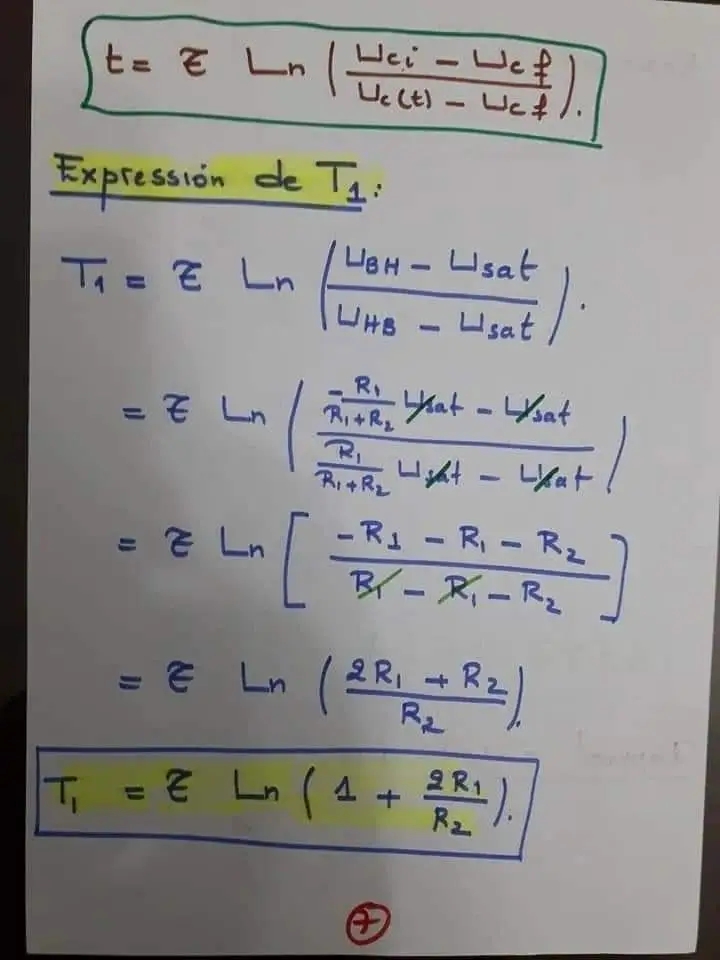 t = τ Ln ( (Uci - Ucf) / (Uc(t) - Ucf) ).
Expressión de T1:
T1 = τ Ln ( (UBH - Usat) / (UHB - Usat) ).
= τ Ln ( (-R1/(R1+R2) Usat - Usat) / (R1/(R1+R2) Usat - Usat) )
= τ Ln [ (-R1 - R1 - R2) / (R1 - R1 - R2) ]
= τ Ln ( (2R1 + R2) / R2 ).
T1 = τ Ln ( 1 + 2R1/R2 ).
7